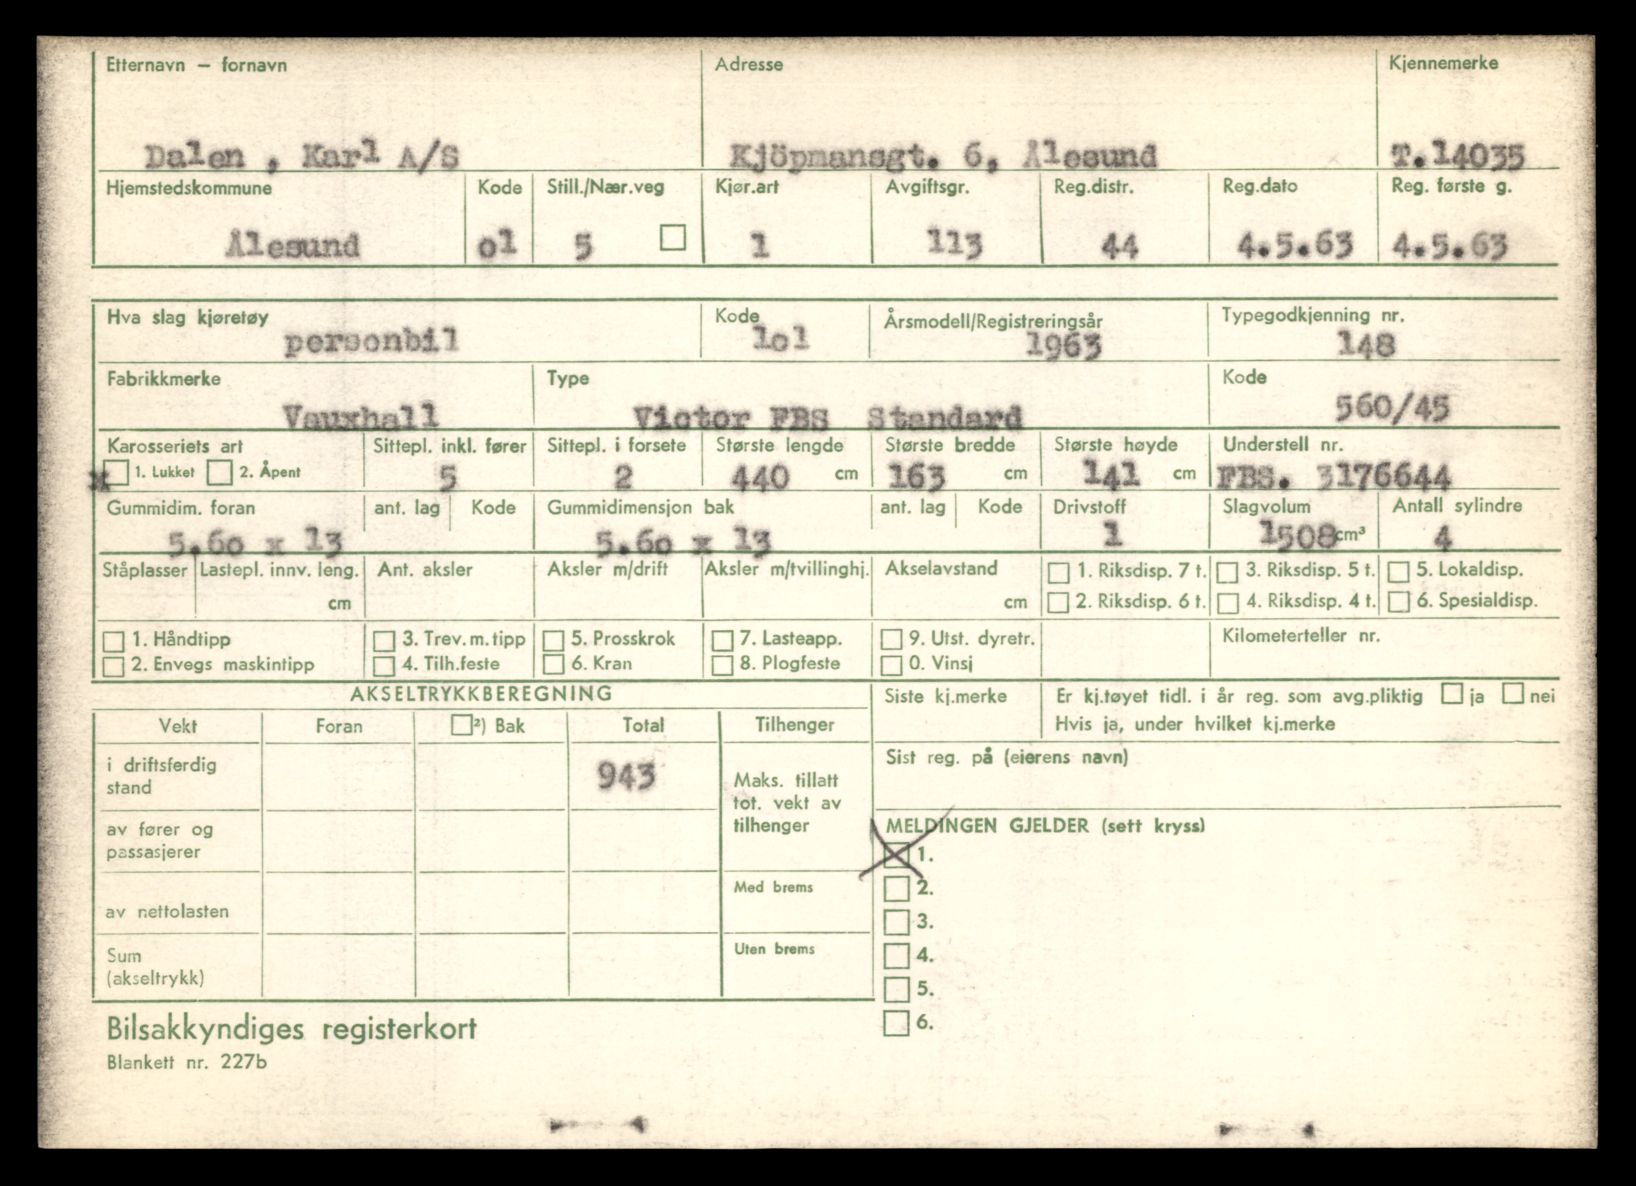 Etternavn – fornavn Adresse Kjennemerke
Dalen , Karl A/S Kjöpmansgt. 6, Ålesund T.14035
Hjemstedskommune Kode Still./Nær.veg Kjør.art Avgiftsgr. Reg.distr. Reg.dato Reg. første g.
Ålesund ol 5 1 113 44 4.5.63 4.5.63
Hva slag kjøretøy Kode Årsmodell/Registreringsår Typegodkjenning nr.
personbil lol 1963 148
Fabrikkmerke Type Kode
Vauxhall Victor FBS Standard 560/45
Karosseriets art Sittepl. inkl. fører Sittepl. i forsete Største lengde Største bredde Største høyde Understell nr.
x 1. Lukket 2. Åpent 5 2 440 cm 163 cm 141 cm FBS. 3176644
Gummidim. foran ant. lag Kode Gummidimensjon bak ant. lag Kode Drivstoff Slagvolum Antall sylindre
5.60 x 13 5.60 x 13 1 1508 cm³ 4
Ståplasser Lastepl. innv. leng. Ant. aksler Aksler m/drift Aksler m/tvillinghj. Akselavstand 1. Riksdisp. 7 t. 3. Riksdisp. 5 t. 5. Lokaldisp.
cm cm 2. Riksdisp. 6 t. 4. Riksdisp. 4 t. 6. Spesialdisp.
1. Håndtipp 3. Trev. m. tipp 5. Prosskrok 7. Lasteapp. 9. Utst. dyretr. Kilometerteller nr.
2. Envegs maskintipp 4. Tilh.feste 6. Kran 8. Plogfeste 0. Vinsj
AKSELTRYKKBEREGNING Siste kj.merke Er kj.tøyet tidl. i år reg. som avg.pliktig ja nei
Vekt Foran ²) Bak Total Tilhenger Hvis ja, under hvilket kj.merke
i driftsferdig stand 943 Maks. tillatt tot. vekt av tilhenger Sist reg. på (eierens navn)
av fører og passasjerer MELDINGEN GJELDER (sett kryss)
X 1.
Med brems 2.
av nettolasten 3.
Uten brems 4.
Sum (akseltrykk) 5.
6.
Bilsakkyndiges registerkort
Blankett nr. 227b